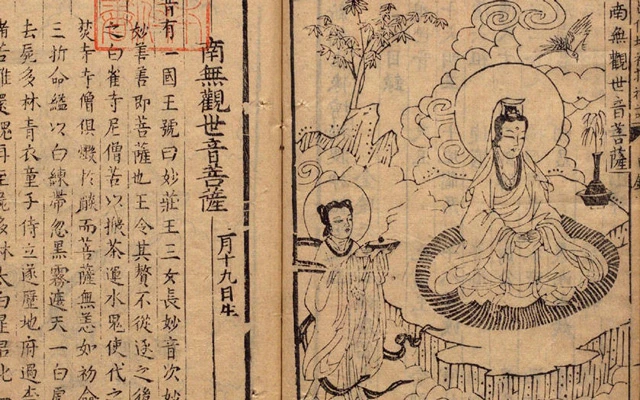 南無觀世音菩薩
南無觀世音菩薩
二月十九日生
昔有一國王號曰妙莊王三女長妙音次妙
妙善善即菩薩也王令其贅不從逐之後
之白雀寺尼僧苦以搬茶運水鬼使代之
焚寺寺僧俱燬於而菩薩無恙如初命
三折命縊以白練帶忽黑霧遮天一白虎
去屍多林青衣童子侍立遂歷地府過
苦難還魂再至屍多林太白星